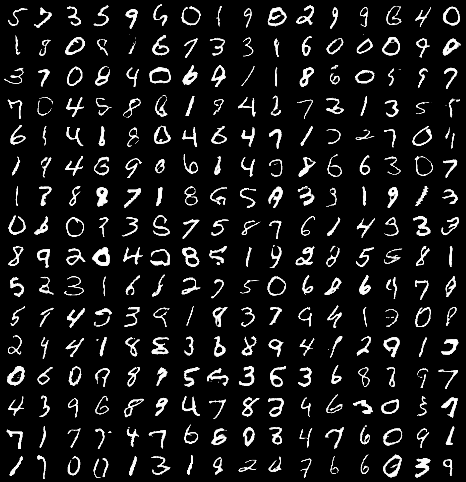 5 7 3 5 9 6 0 1 9 0 2 9 9 6 4 0
1 8 0 9 1 6 7 3 3 1 6 0 0 0 9 0
3 7 0 8 4 0 6 9 1 1 8 6 0 5 9 7
7 0 4 5 8 6 1 9 4 2 7 3 1 3 5 5
6 1 4 1 8 0 4 6 4 7 1 2 7 0 4
1 9 4 6 9 0 6 1 4 8 6 6 3 0 7
1 7 8 8 7 1 8 6 5 3 3 1 9 1 3
0 6 0 7 3 8 7 5 8 7 6 1 4 9 3 3
8 9 2 0 4 0 8 5 1 9 2 8 5 5 8 1
5 2 3 1 6 1 2 7 5 0 6 8 6 9 7 8
5 7 4 3 3 9 1 8 3 7 9 4 1 7 0 8
2 9 4 1 8 8 3 6 8 9 4 1 2 9 1 3
0 6 0 9 8 9 5 5 3 6 3 6 8 8 9 7
4 3 9 6 8 9 4 7 8 3 9 6 3 0 5 9
7 1 7 7 4 7 6 6 0 8 4 7 6 0 9 1
1 7 0 0 1 3 1 9 2 0 7 6 6 0 3 9